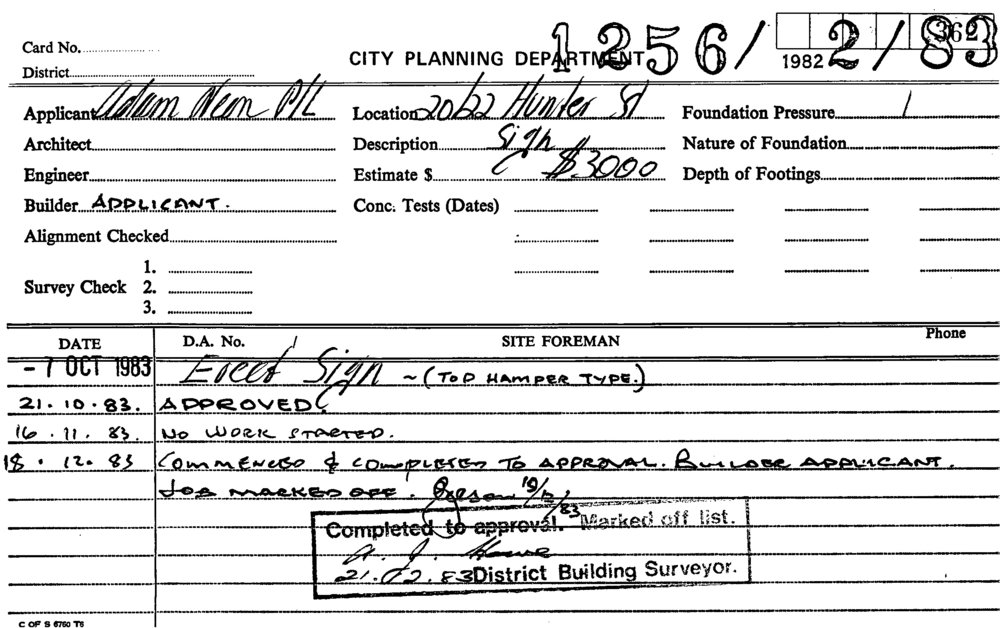 Card No.
CITY PLANNING DEPARTMENT
1256/2/83
362
1982
District
Applicant Adam Neon P/L
Location 20/22 Hunter St
Foundation Pressure
Architect
Description Sign
Nature of Foundation
Engineer
Estimate $ $3000
Depth of Footings
Builder APPLICANT.
Conc. Tests (Dates)
Alignment Checked
Survey Check
1.
2.
3.
DATE D.A. No. SITE FOREMAN Phone
- 7 OCT 1983 Erect Sign ~ (TOP HAMPER TYPE.)
21.10.83. APPROVED.
16.11.83. NO WORK STARTED.
18.12.83 COMMENCED & COMPLETED TO APPROVAL. BUILDER APPLICANT.
JOB MARKED OFF.
Completed to approval. Marked off list.
21.12.83 District Building Surveyor.
C OF S 6760 T6